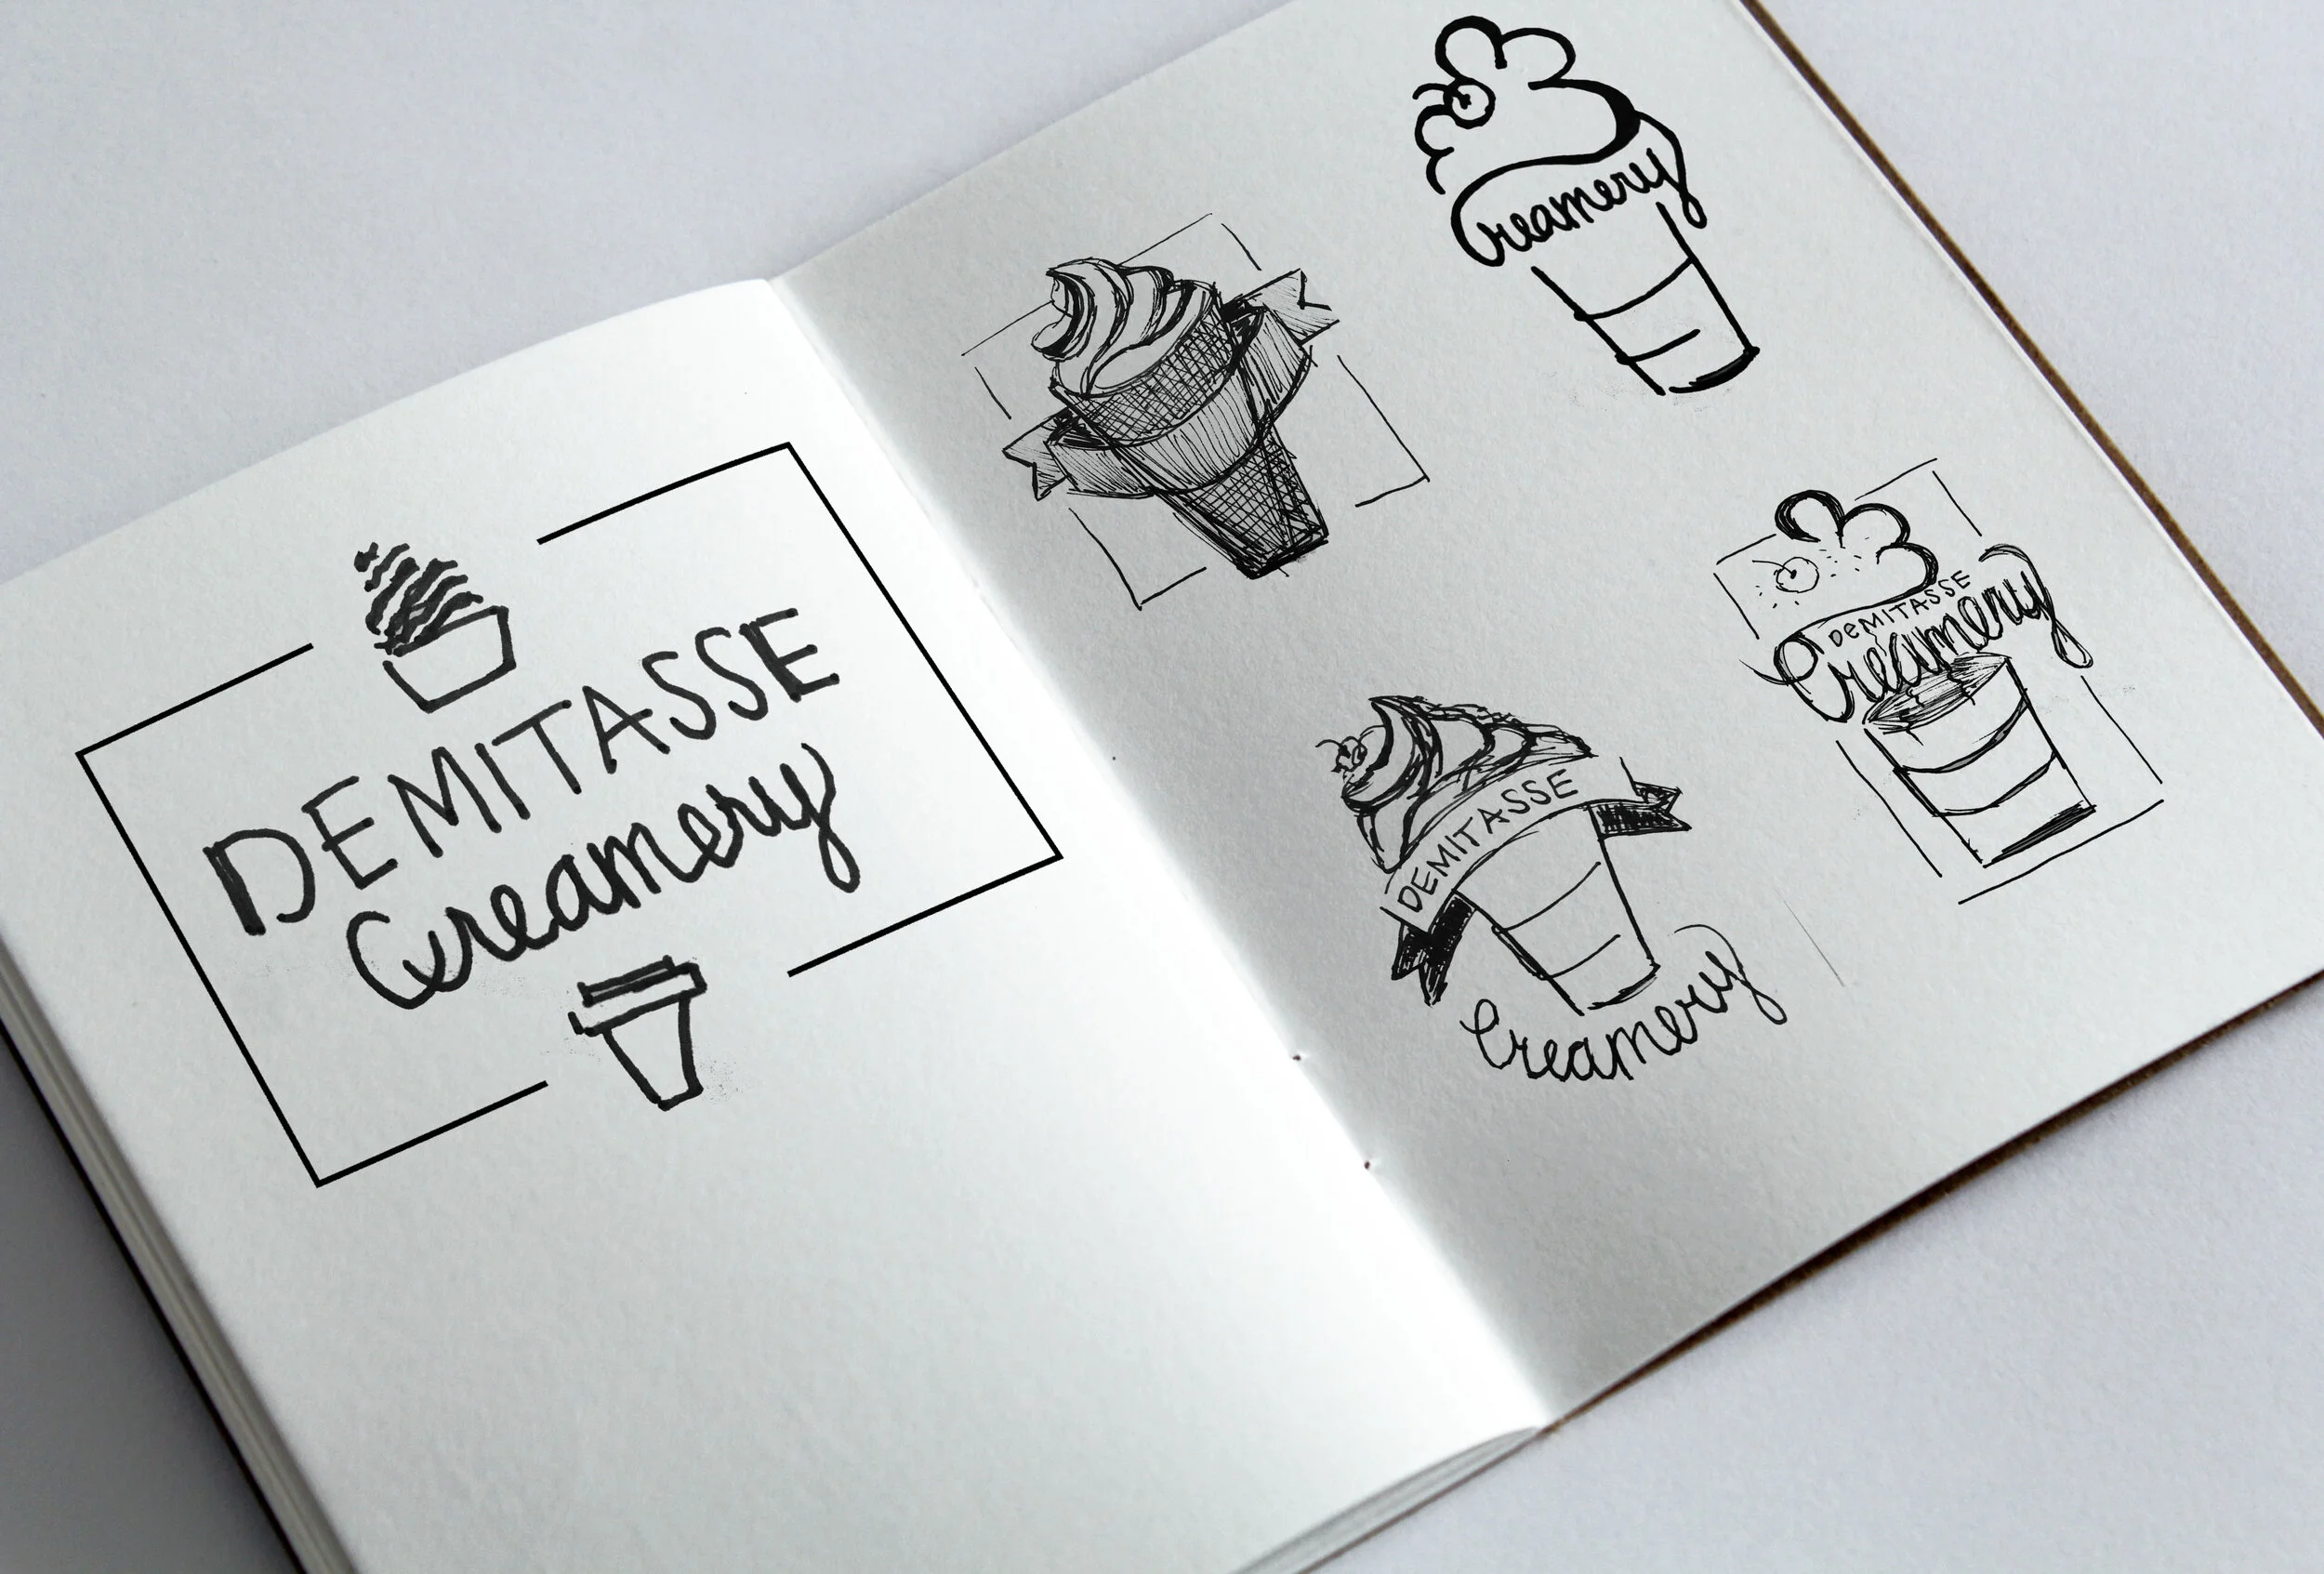 DEMITASSE
Creamery
Creamery
DEMITASSE
Creamery
DEMITASSE
Creamery